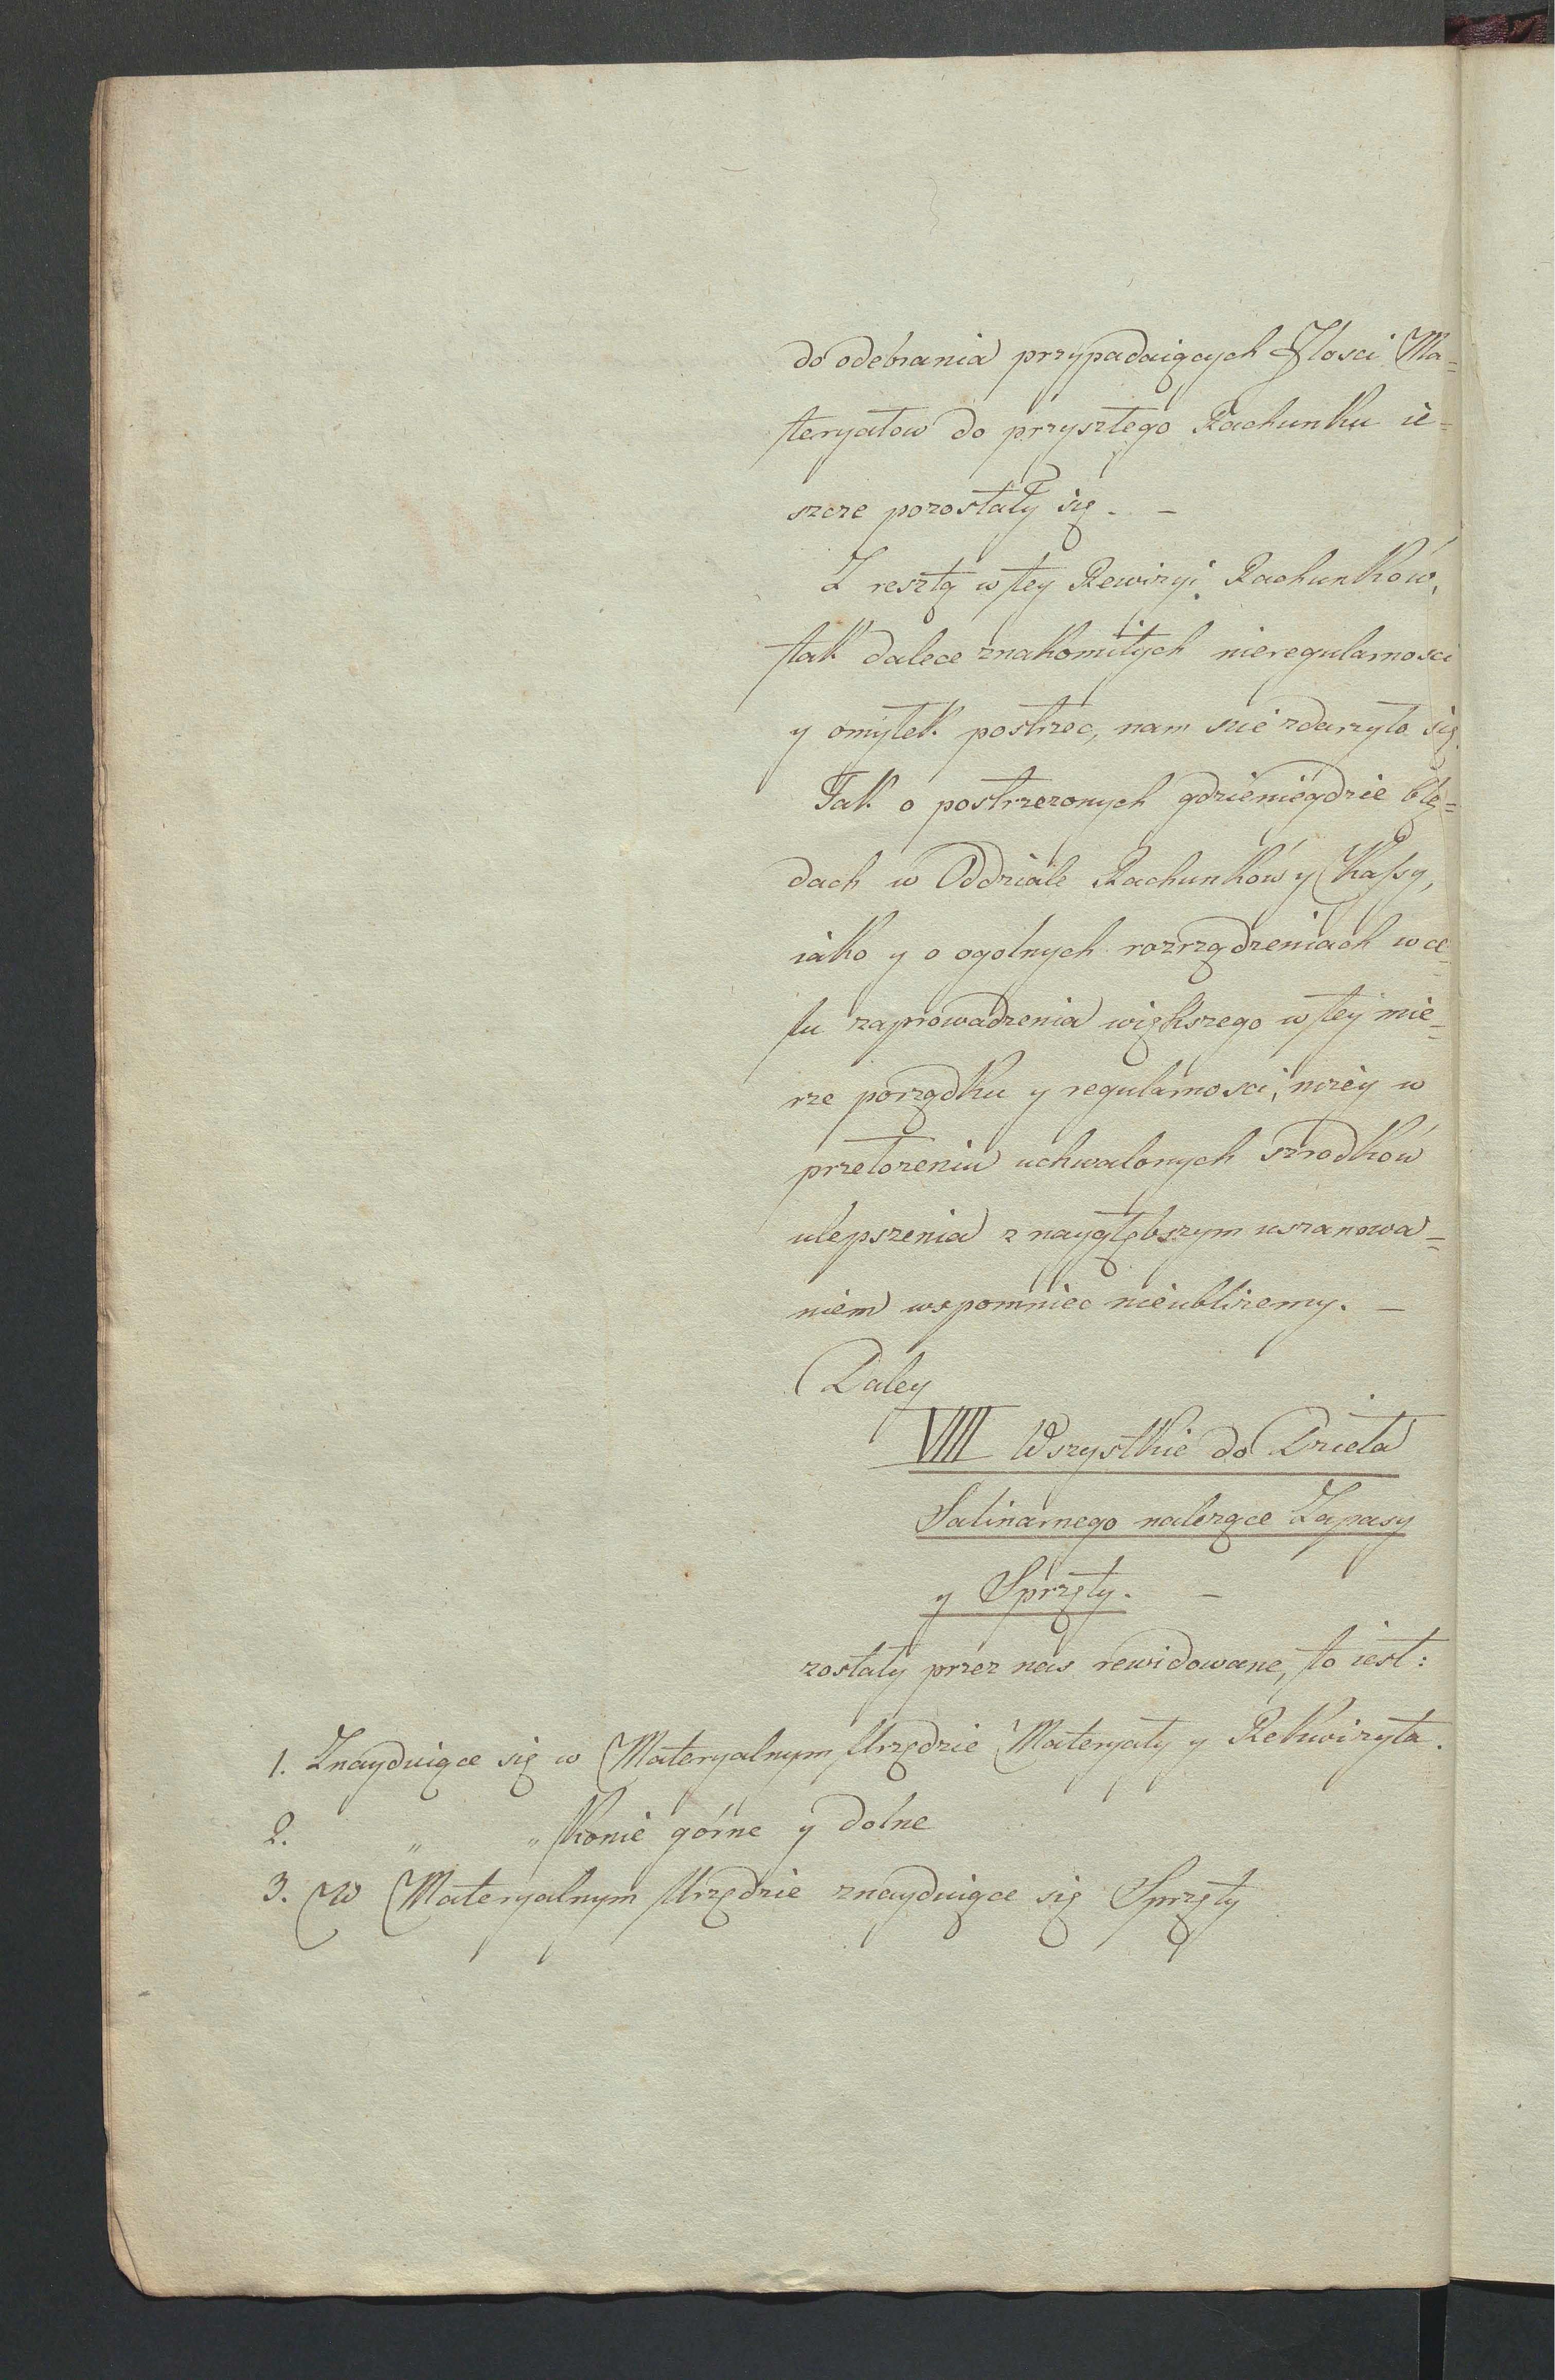 do odebrania przypadaiących Jlosci Ma=
teryałow do przyszłego Rachunku ie=
szcze pozostały się. –
Z resztą w tey Rewizyi Rachunków,
tak dalece znakomitych nieregularnosci
y omyłek postrzec, nam nie zdarzyło się.
Jak o postrzezonych gdzieniegdzie błę=
dach w Oddziale Rachunków y Kassy,
iako y o ogolnych rozrządzeniach w ce=
lu zaprowadzenia większego w tey mie=
rze porządku y regularnosci, nizey w
przełozeniu uchwalonych szrodków
ulepszenia z naygłębszym uszanowa=
niem wspomniec nieubliżemy. –
Daley
VIIII Wszystkie do Dzieła
Salinarnego nalezące Zapasy
y Sprzęty. –
zostały przez nas rewidowane, to iest:
1. Znayduiące się w Materyalnym Urzędzie Materyały y Rekwizyta.
2. " " Konie górne y dolne
3. W Materyalnym Urzędzie znayduiące się Sprzęty